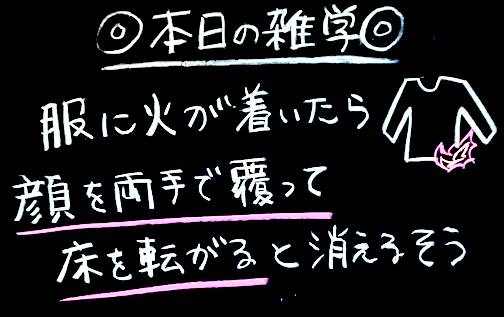 ◎本日の雑学◎
服に火が着いたら
顔を両手で覆って
床を転がると消えるそう